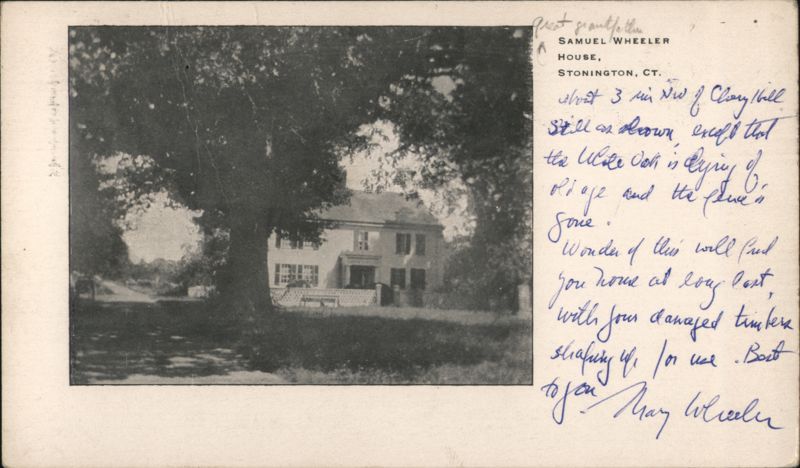 Great grandfather
SAMUEL WHEELER
HOUSE,
STONINGTON, CT.
about 3 mi NW of
Still as shown, except that
the White Oak is dying of
old age and the fence is
gone.
Wonder if this will find
you home at long last,
with your damaged timbers
shaping up for use. Best
to you
Mary Wheeler